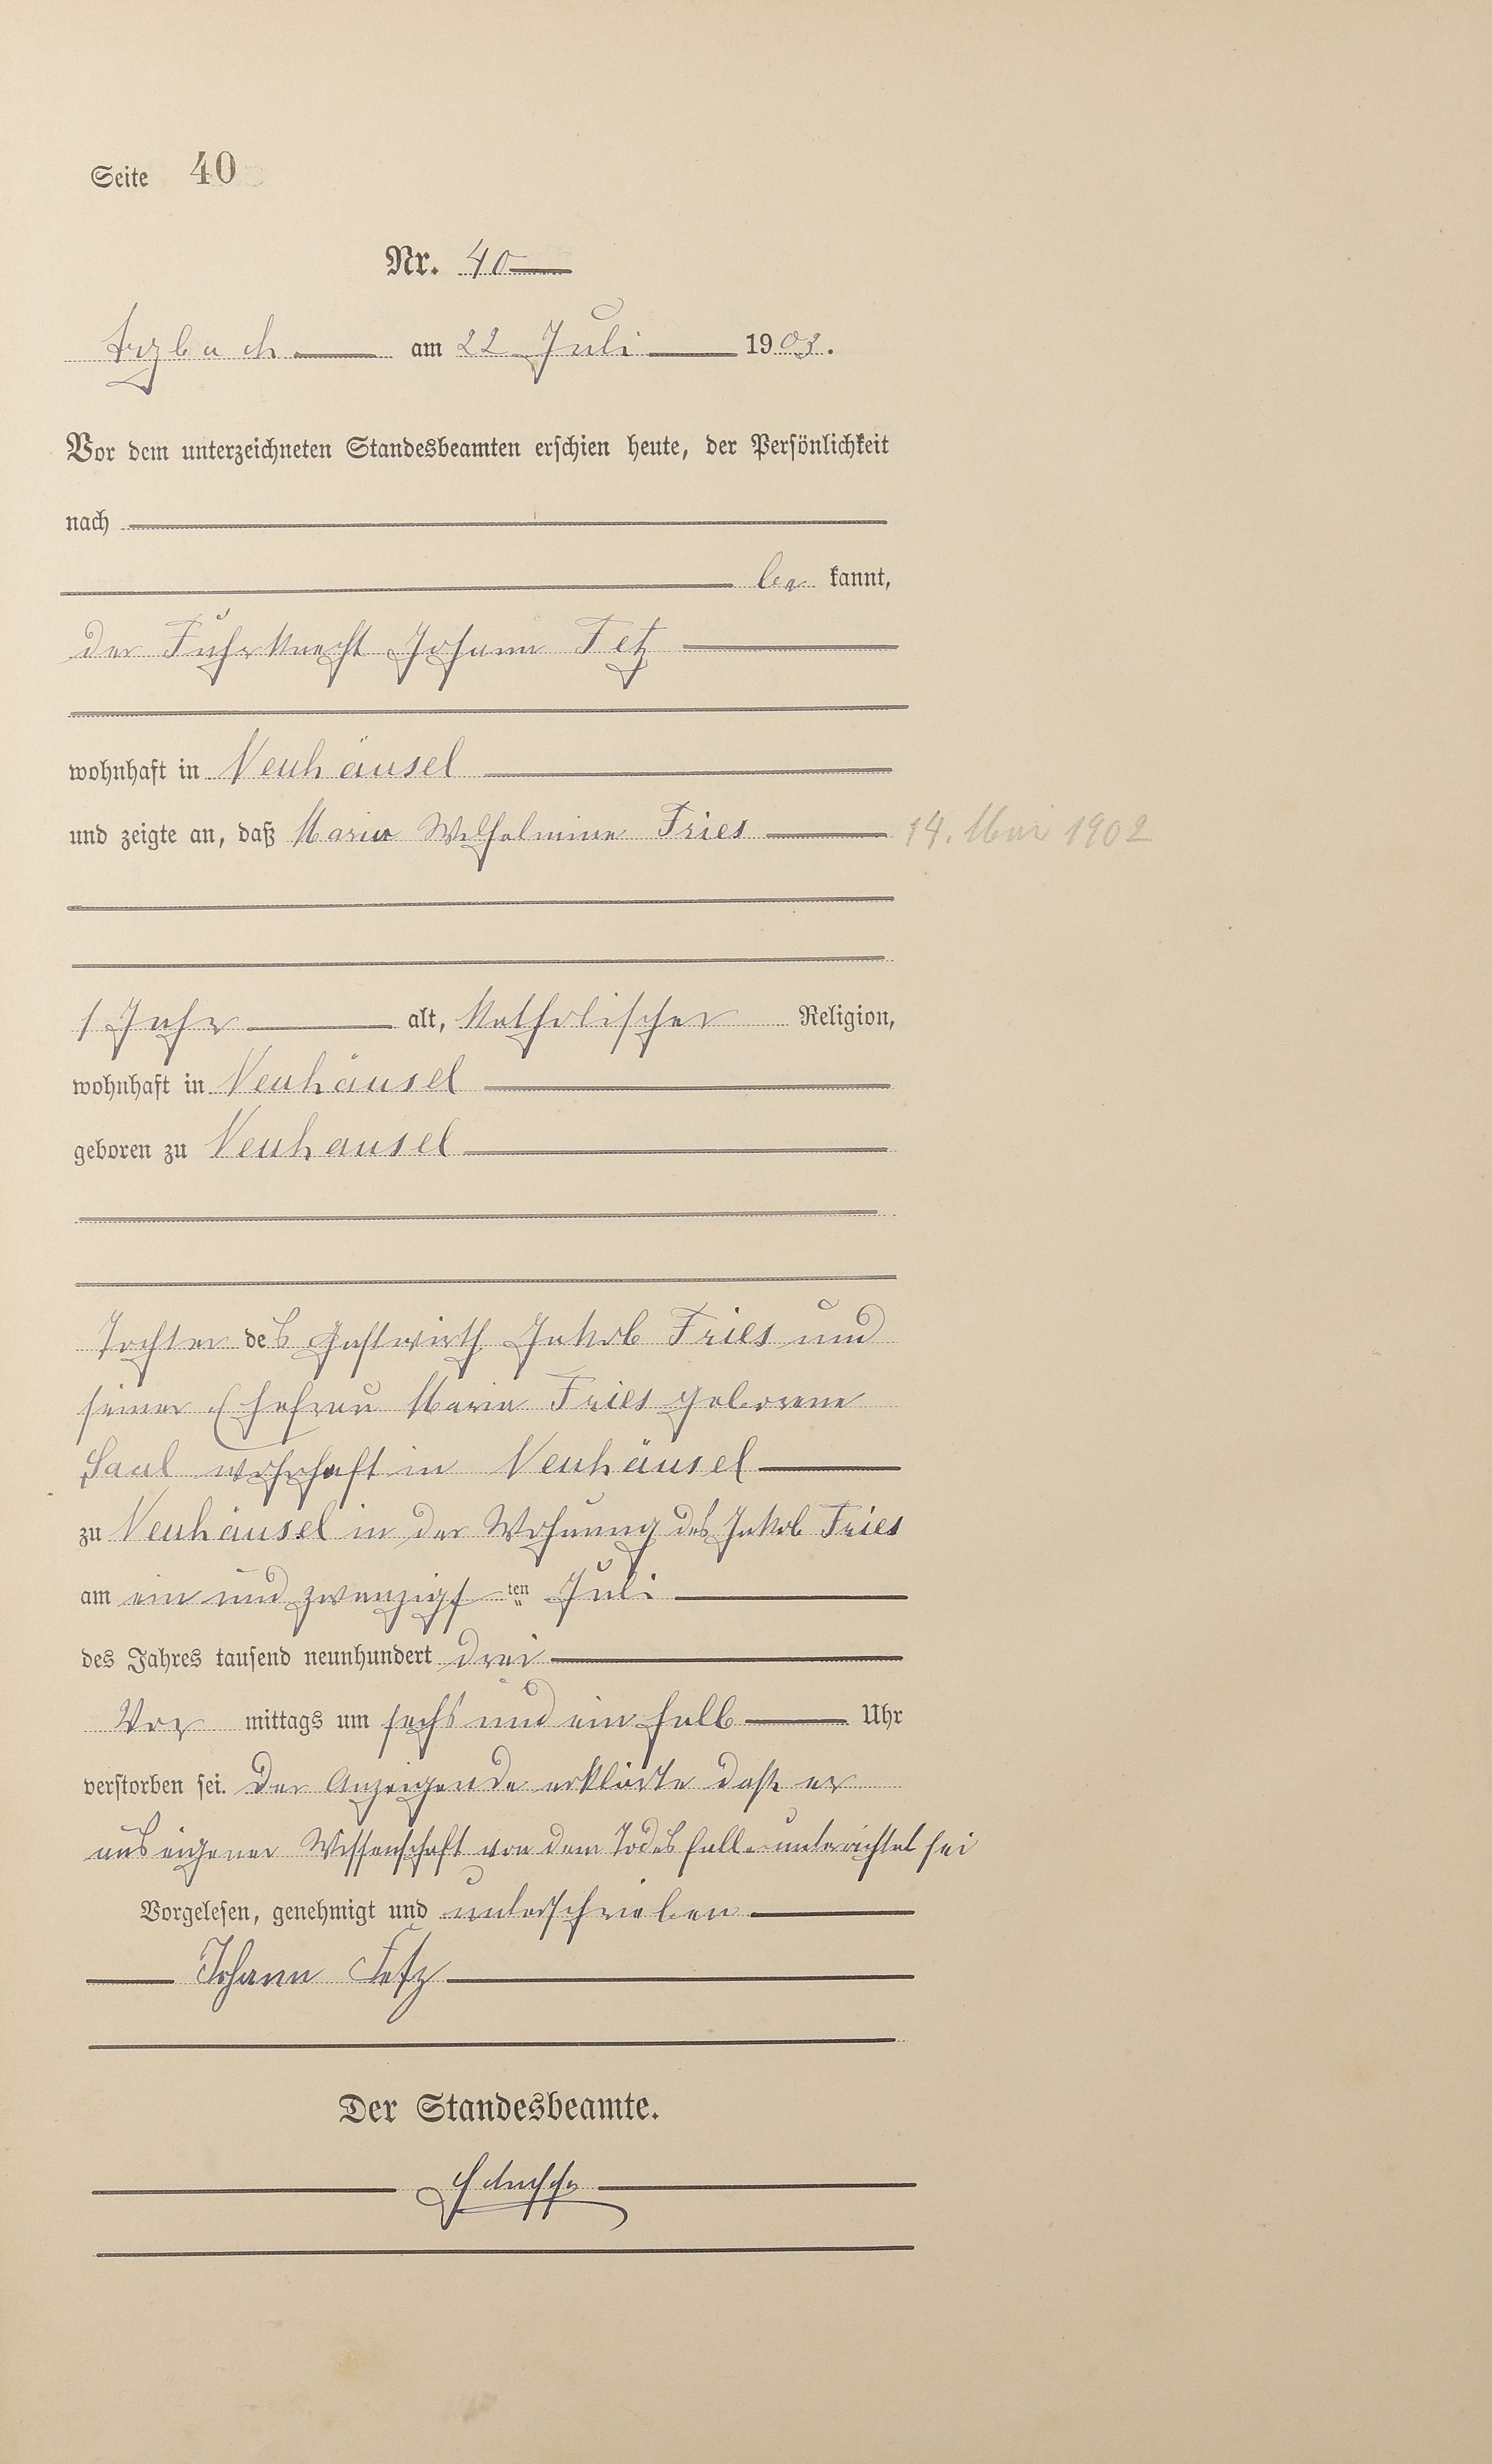 Seite 40
Nr. 40
Arzbach am 22 Juli 1903.
Vor dem unterzeichneten Standesbeamten erschien heute, der Persönlichkeit
nach
be kannt,
der Fuhrknecht Johann Fetz
wohnhaft in Neuhäusel
und zeigte an, daß Maria Wilhelmine Fries 14. Mai 1902
1 Jahr alt, katholischer Religion,
wohnhaft in Neuhäusel
geboren zu Neuhausel
Tochter des Gastwirth Jakob Fries und
seiner Ehefrau Maria Fries geborene
Saal wohnhaft in Neuhäusel
zu Neuhäusel in der Wohnung des Jakob Fries
am ein und zwanzigs ten Juli
des Jahres tausend neunhundert drei
Vor mittags um sechs und ein halb Uhr
verstorben sei. Der Anzeigende erklärte daß er
aus eigener Wissenschaft von dem Todesfalle unterrichtet sei
Vorgelesen, genehmigt und unterschrieben
Johann Fetz
Der Standesbeamte.